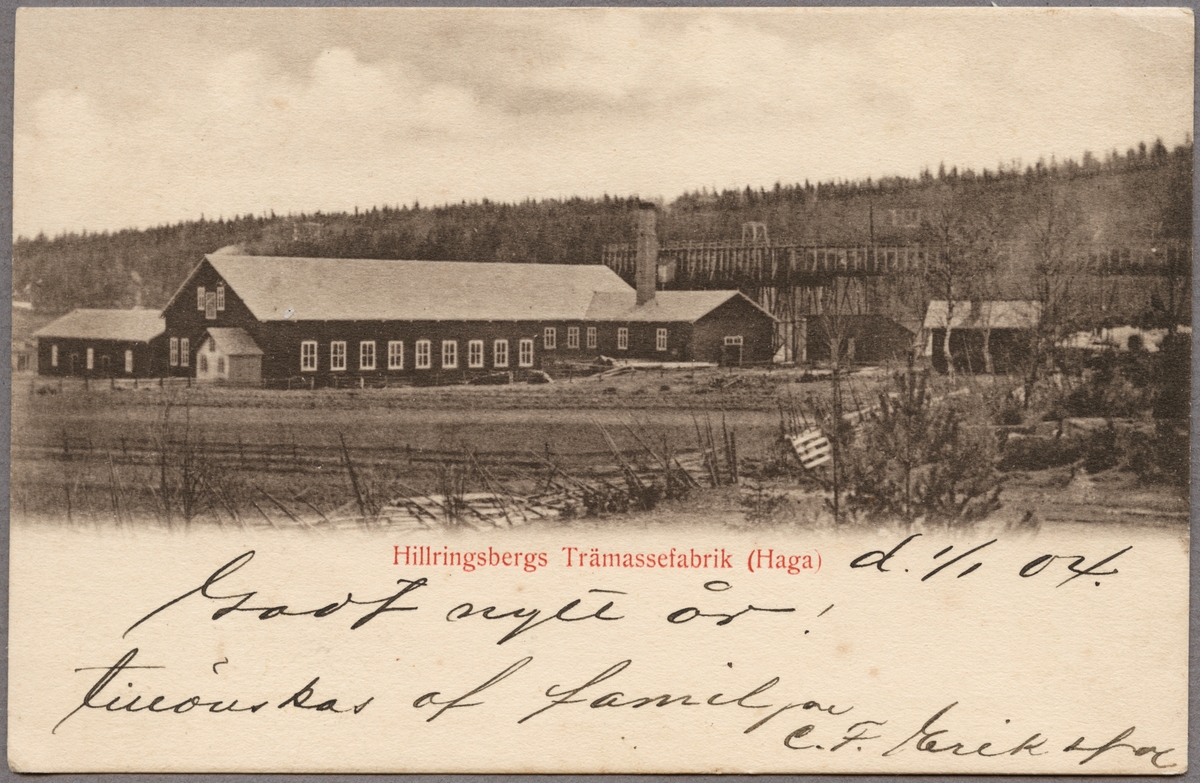 Hillringsbergs Trämassefabrik (Haga) d. 1/1 04.
Godt nytt år!
tillönskas af familjen
C. F. Erikson